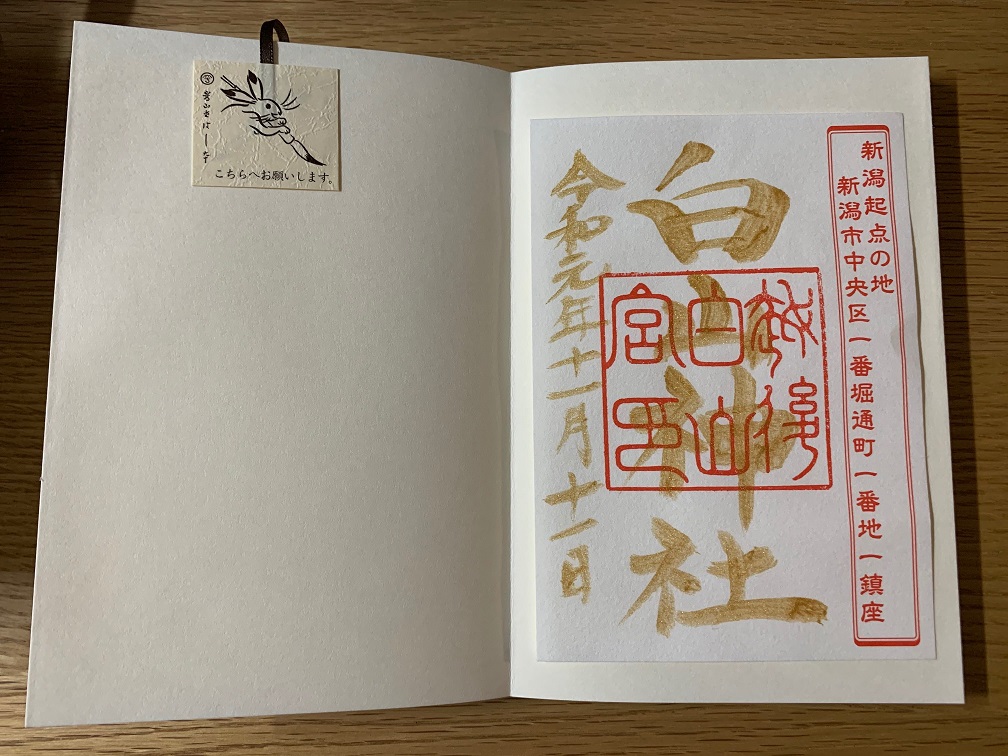 こちらへお願いします。
新潟起点の地
新潟市中央区一番堀通町一番地一鎮座
白山神社
越後
白山
宮印
令和元年十一月十一日